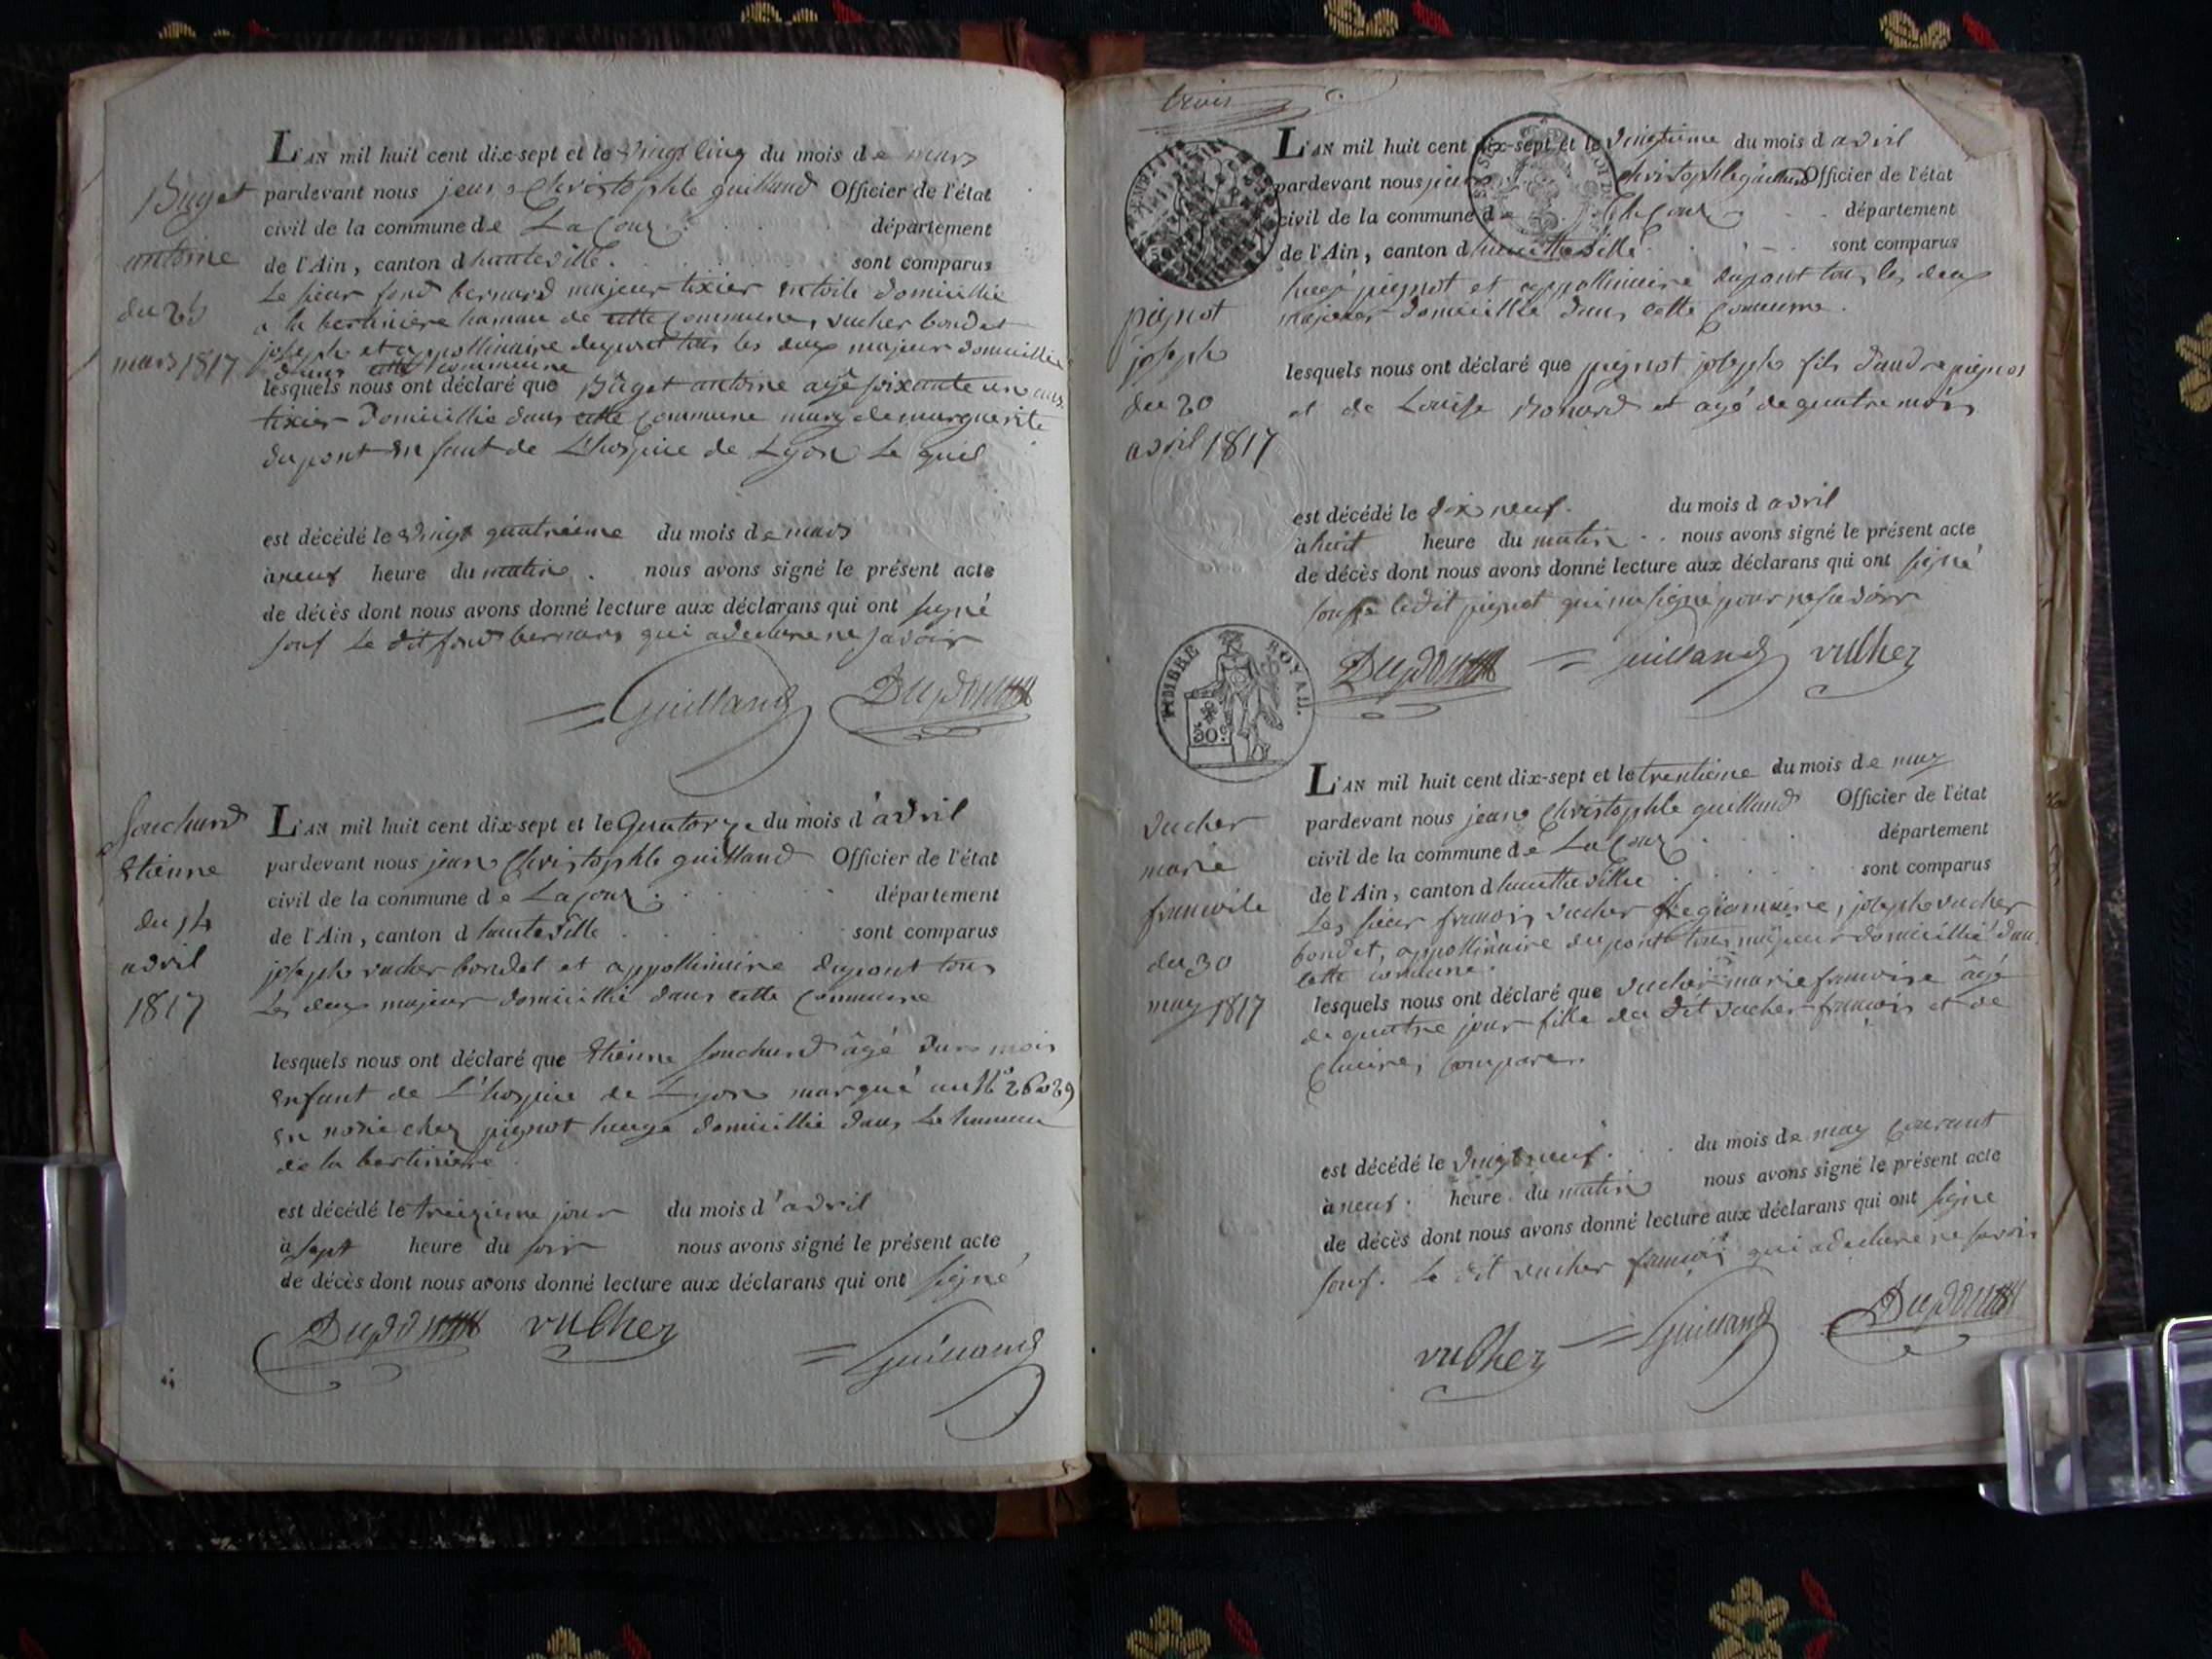 Buget
antoine
du 25
mars 1817
L'AN mil huit cent dix-sept et le vingt cinq du mois de mars
pardevant nous jean Christophle guilland Officier de l'état
civil de la commune de La Coux département
de l'Ain, canton d hauteville. sont comparus
Le sieur fond bernard majeur tixier en toile domicillié
a la bertiniere hamau de cette Commune, vucher bondet
joseph et appollinaire dupont tous les deux majeur domicillié
dans cette commune
lesquels nous ont déclaré que Buget antoine agé soixante un ans
tixier domicillié dans cette Commune mary de marguerite
dupont enfant de L'hospice de Lyon Le quel
est décédé le vingt quatrième du mois de mars
à neuf heure du matin. nous avons signé le présent acte
de décès dont nous avons donné lecture aux déclarans qui ont signé
souf Le dit fond bernard qui a declare ne savoir
Guilland Dupont
souchard
Etienne
du 14
avril
1817
L'AN mil huit cent dix-sept et le Quatorze du mois d'avril
pardevant nous jean Christophle guilland Officier de l'état
civil de la commune de La Coux département
de l'Ain, canton d hauteville sont comparus
joseph vucher bondet et appollinaire dupont tous
Les deux majeur domicillié dans cette Commune
lesquels nous ont déclaré que Etienne souchard âgé dun mois
enfant de L'hospice de Lyon marqué au N°
en norie chez pignot domicillié dans Le hamau
de la bertiniere
est décédé le treizieme jour du mois d'avril
à sept heure du soir nous avons signé le présent acte
de décès dont nous avons donné lecture aux déclarans qui ont signé
Dupont vucher Guilland
trois
pignot
joseph
du 20
avril 1817
L'AN mil huit cent dix-sept et le vingtieme du mois d avril
pardevant nous jean Christophle guilland Officier de l'état
civil de la commune de La Coux département
de l'Ain, canton d hautteville sont comparus
pignot et appollinaire dupont tous les deux
majeur domicillié dans cette Commune.
lesquels nous ont déclaré que pignot joseph fils d'andre pignot
et de Louise agé de quatre mois
est décédé le dix neuf. du mois d avril
à huit heure du matin nous avons signé le présent acte
de décès dont nous avons donné lecture aux déclarans qui ont signé
ledit pignot qui na signé pour ne savoir
Dupont guilland vucher
TIMBRE ROYAL.
50c
vucher
marie
francoise
du 30
may 1817
L'AN mil huit cent dix-sept et le trentieme du mois de may
pardevant nous jean Christophle guilland Officier de l'état
civil de la commune de La Coux département
de l'Ain, canton d hautteville sont comparus
Les sieur francois vucher joseph vucher
bondet, appollinaire dupont tous majeur domicillié dans
cette commune.
lesquels nous ont déclaré que vucher marie francoise âgé
de quatre jour fille du dit vucher francois et de
Claire,
est décédé le vingt neuf. du mois de may Courant
à neuf. heure du matin nous avons signé le présent acte
de décès dont nous avons donné lecture aux déclarans qui ont signe
souf. Le dit vucher francois qui a declare ne savoir
vucher Guilland Dupont